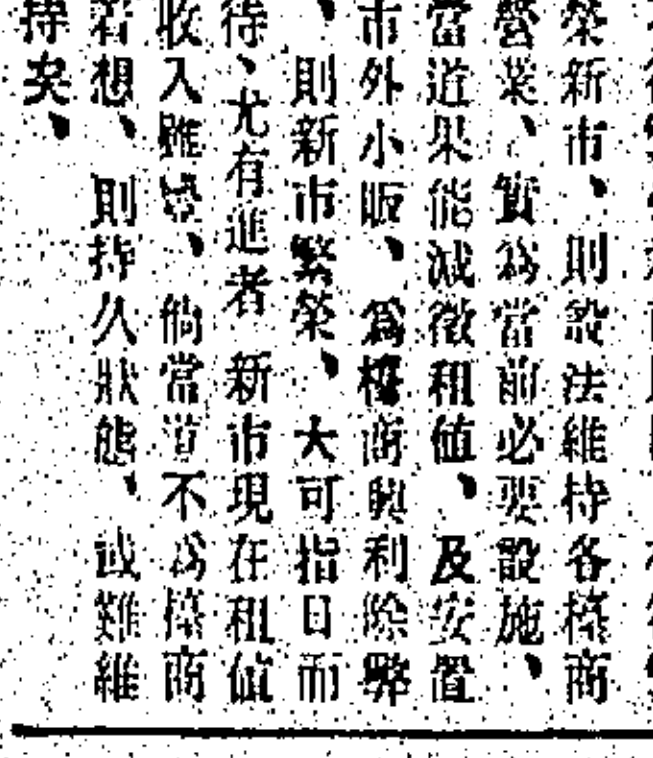 榮新市、則設法維持各檯商
營業、實為當前必要設施、
當道果能減徵租値、及安置
市外小販、爲檯商興利除弊
、則新市繁榮、大可指日而
待、尤有進者 新市現在租値
收入雖豐、倘當道不為檯商
着想、則持久狀態、或難維
持矣、